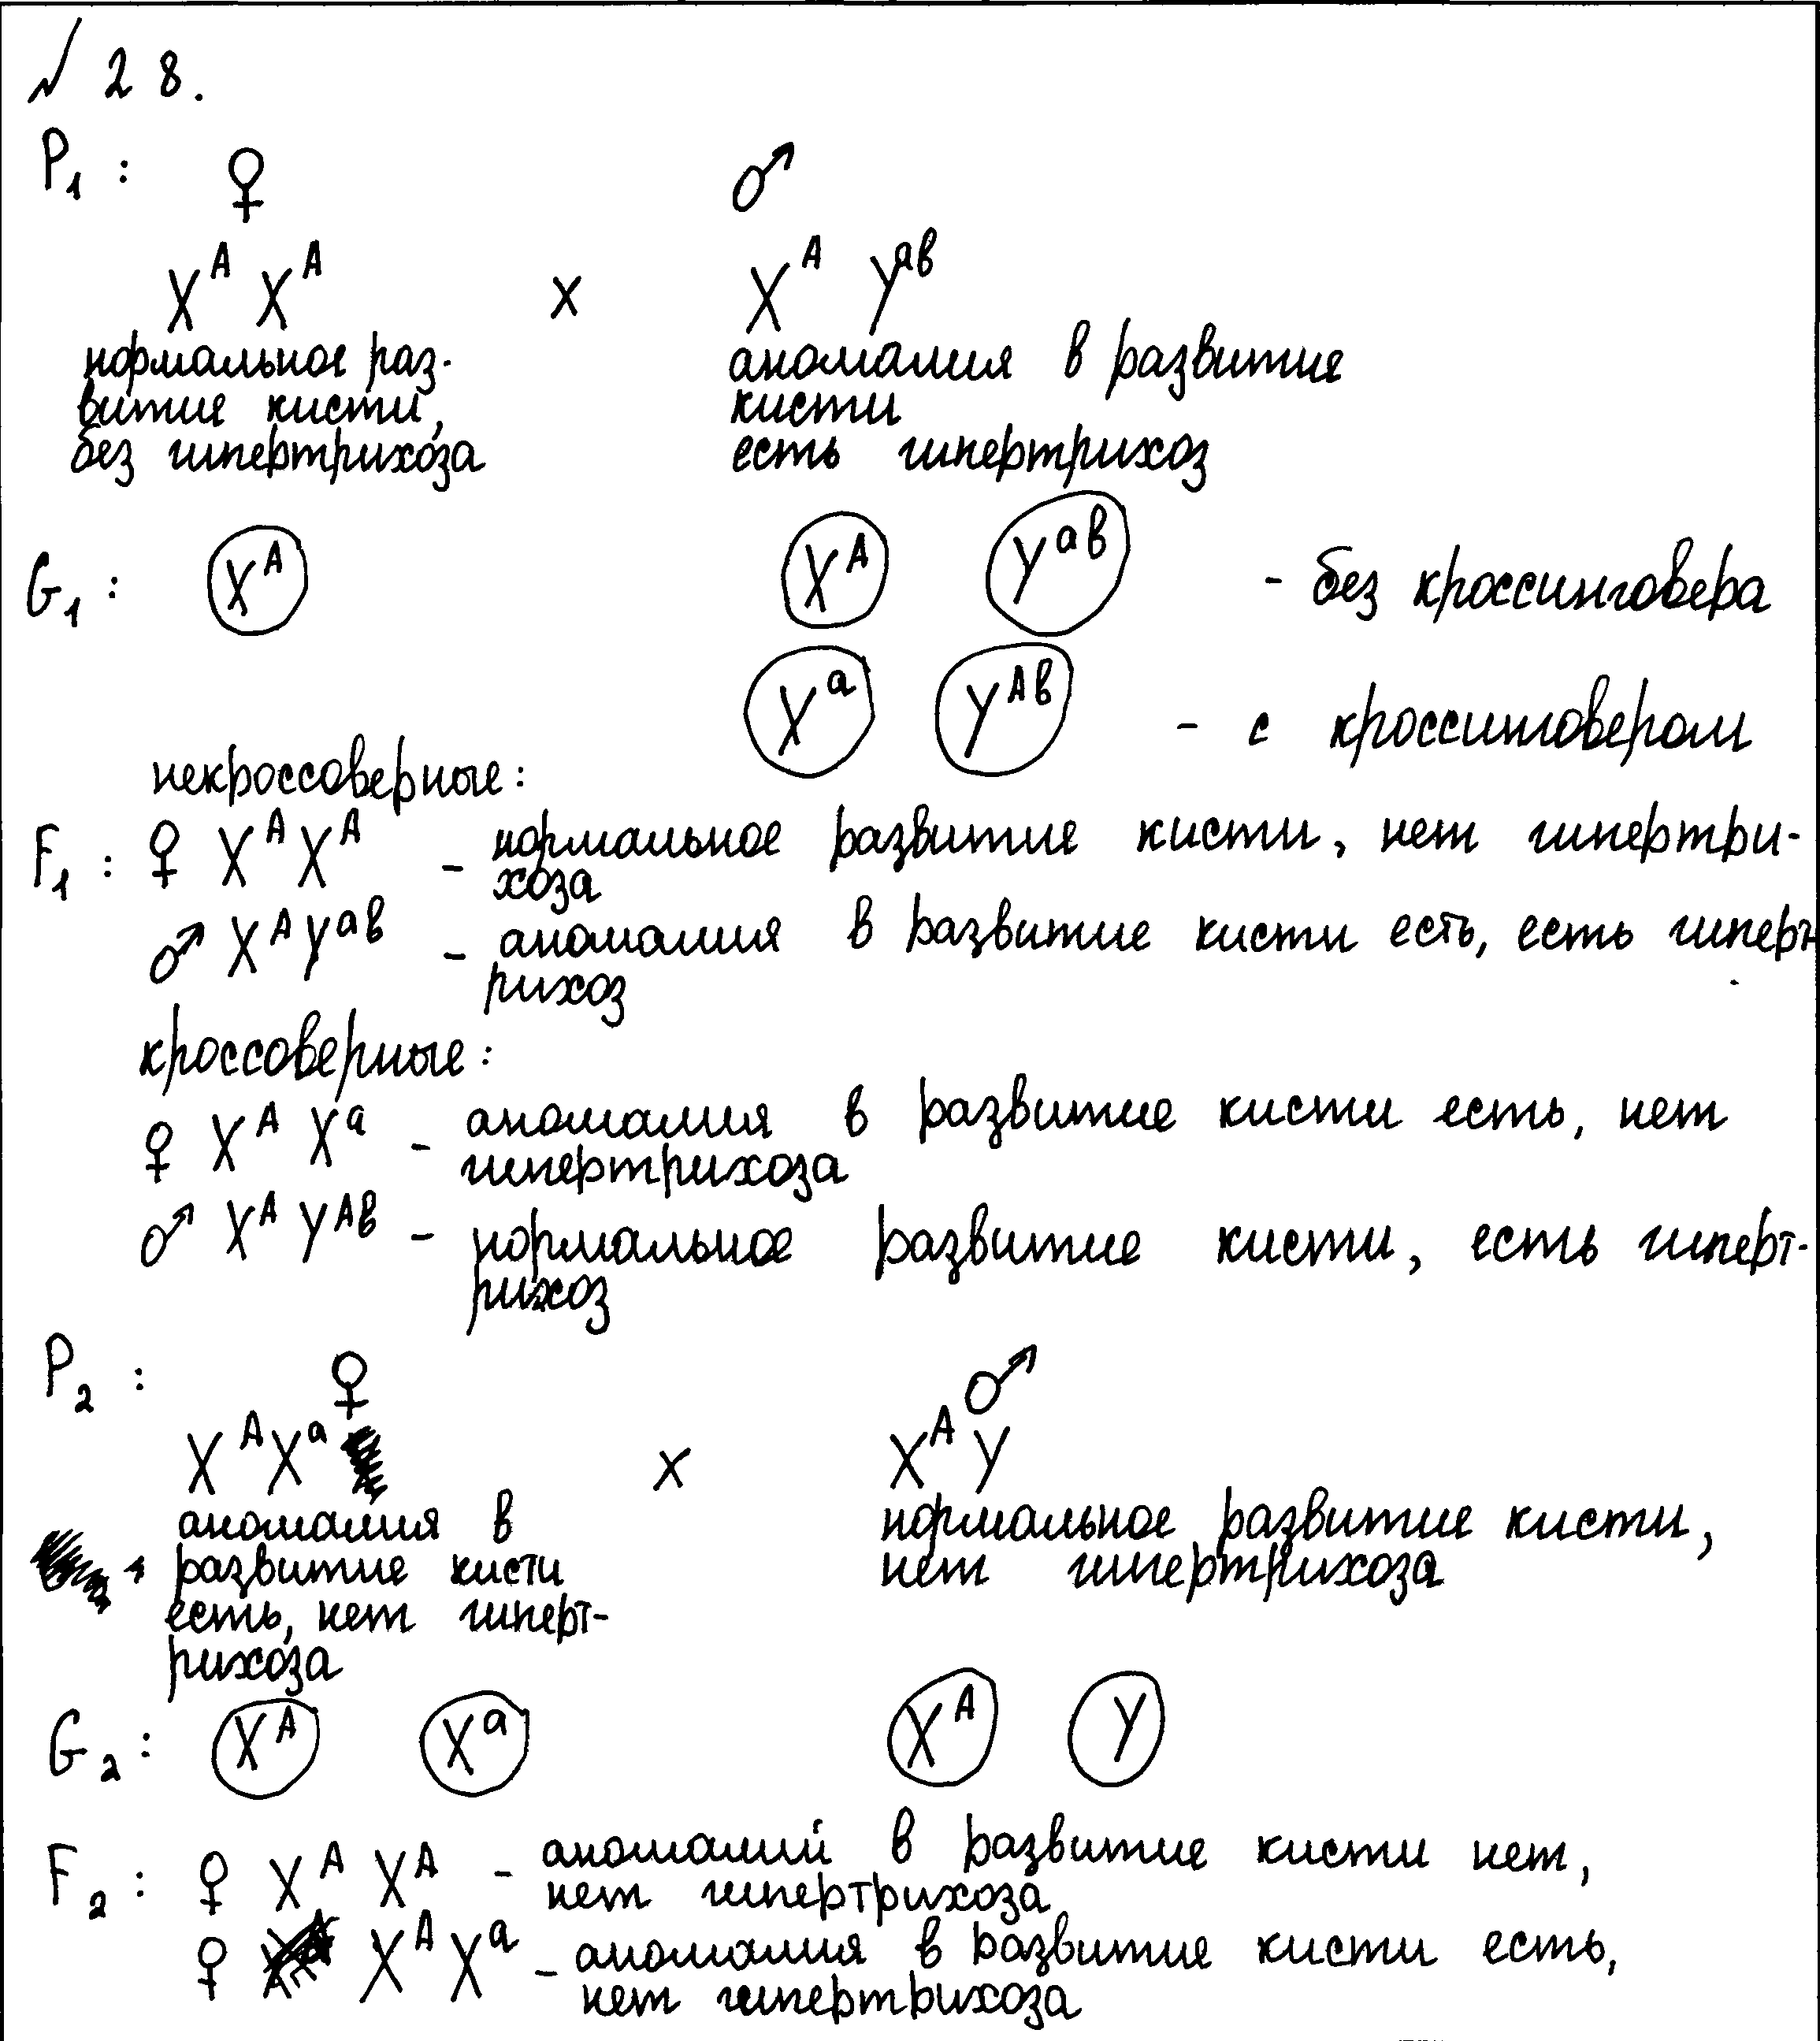 № 28.
P₁ : ♀ ♂
Xᴬ Xᴬ x Xᴬ Yᵃᵇ
нормальное раз- аномалия в развитие
витие кисти, кисти
без гипертрихоза есть гипертрихоз
G₁ : Xᴬ Xᴬ Yᵃᵇ - без кроссинговера
Xᵃ Yᴬᵇ - с кроссинговером
некроссоверные:
F₁ : ♀ XᴬXᴬ - нормальное развитие кисти, нет гипертри-
хоза
♂ XᴬYᵃᵇ - аномалия в развитие кисти есть, есть гиперт
рихоз
кроссоверные:
♀ Xᴬ Xᵃ - аномалия в развитие кисти есть, нет
гипертрихоза
♂ Xᴬ Yᴬᵇ - нормальное развитие кисти, есть гиперт-
рихоз
P₂ : ♀ ♂
XᴬXᵃ x XᴬY
аномалия в нормальное развитие кисти,
развитие кисти нет гипертрихоза
есть, нет гиперт-
рихоза
G₂ : Xᴬ Xᵃ Xᴬ Y
F₂ : ♀ Xᴬ Xᴬ - аномалий в развитие кисти нет,
нет гипертрихоза
♀ XᴬXᵃ - аномалия в развитие кисти есть,
нет гипертрихоза